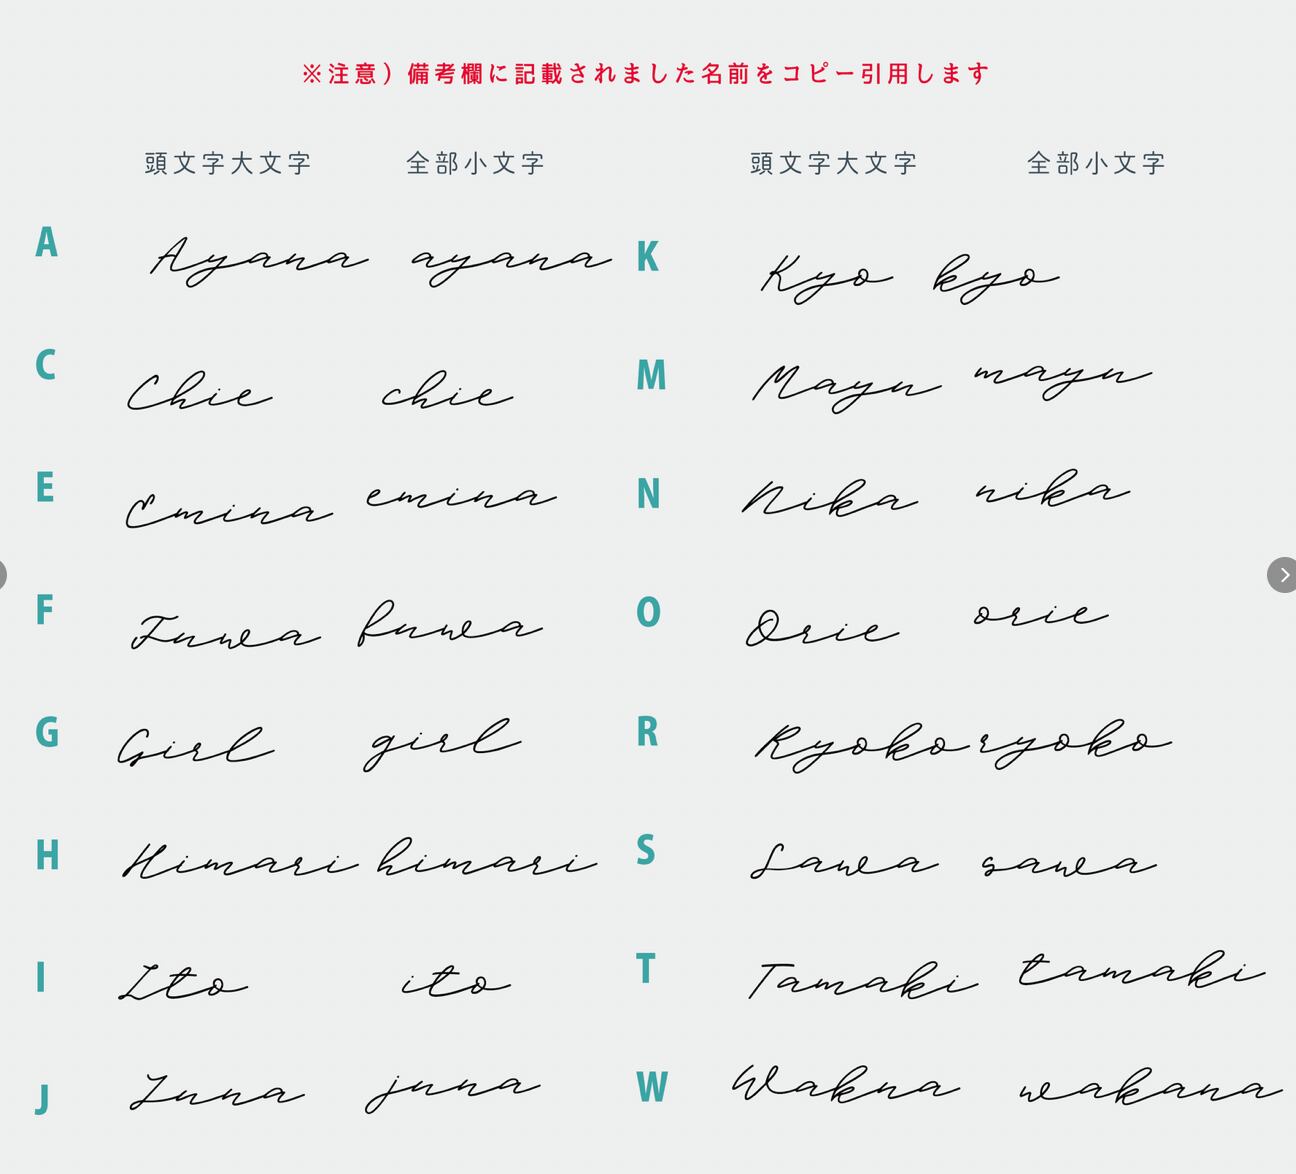 ※注意）備考欄に記載されました名前をコピー引用します
頭文字大文字 全部小文字 頭文字大文字 全部小文字
A Ayana ayana K Kyo kyo
C Chie chie M Mayu mayu
E Emina emina N Nika nika
F Fuwa fuwa O Orie orie
G Girl girl R Ryoko ryoko
H Himari himari S Sawa sawa
I Ito ito T Tamaki tamaki
J Juna juna W Wakna wakana